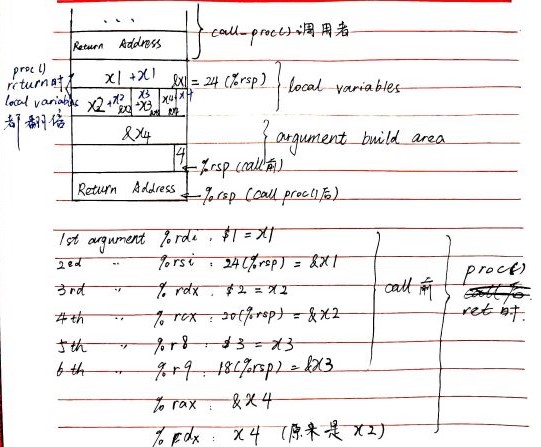 ...
Return Address
call_proc()调用者
proc()
return时
local variables
都翻倍
x1 + x1 &x1 = 24(%rsp)
local variables
x2 + x2 &x2 x3 + x3 &x3 x4 + x4 &x4
&x4
argument build area
4
%rsp (call前)
Return Address
%rsp (call proc()后)
1st argument %rdi : $1 = x1
2ed " %rsi : 24(%rsp) = &x1
3rd " %rdx : $2 = x2
4th " %rcx : 20(%rsp) = &x2
5th " %r8 : $3 = x3
6th " %r9 : 18(%rsp) = &x3
call前
proc()
ret时.
%rax : &x4
%edx : x4 (原来是x2)